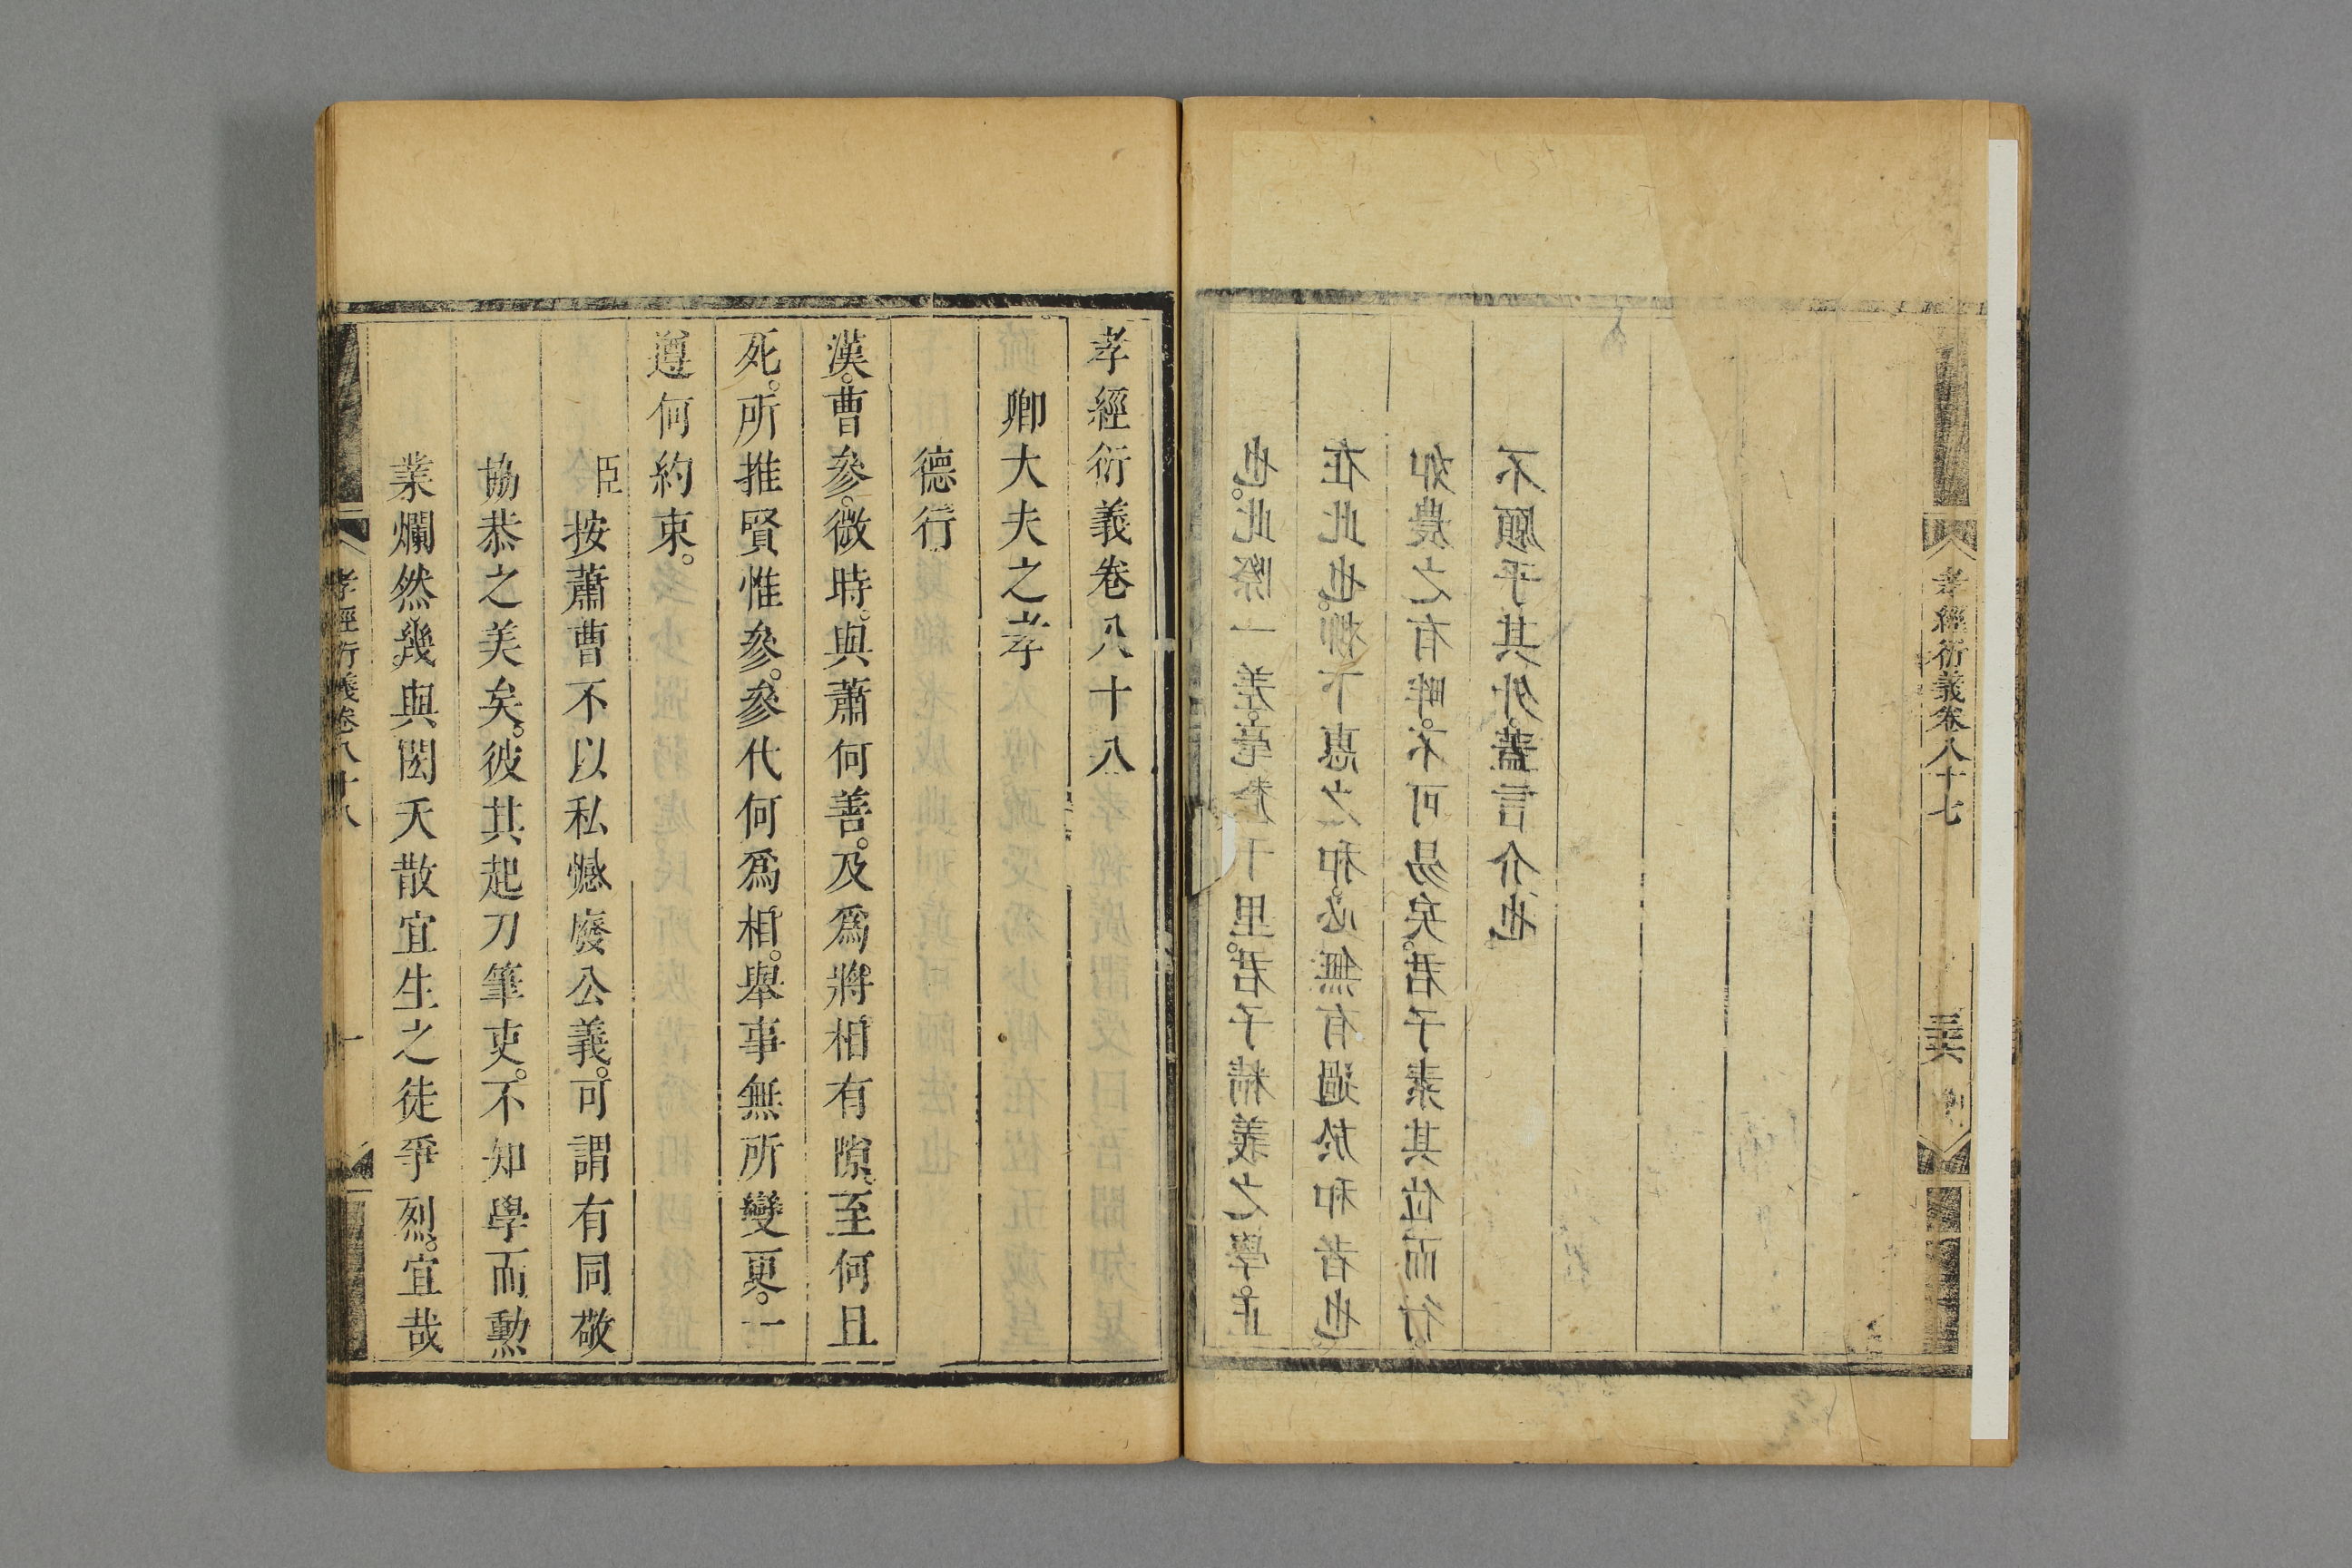 孝經衍義卷八十七
也。此際一差。毫釐千里。君子精義之學。正
在此也。柳下惠之和。必無有過於和者也。
如農之有畔。不可易矣。君子素其位而行。
不願乎其外。蓋言介也
孝經衍義卷八十八
卿大夫之孝
德行
漢。曹參。微時。與蕭何善。及爲將相有隙。至何且
死。所推賢惟參。參代何爲相。舉事無所變更。一
遵何約束。
臣按蕭曹不以私憾廢公義。可謂有同敬
協恭之美矣。彼其起刀筆吏。不知學而勲
業爛然。幾與閎夭散宜生之徒爭烈。宜哉
孝經衍義卷八十八
一